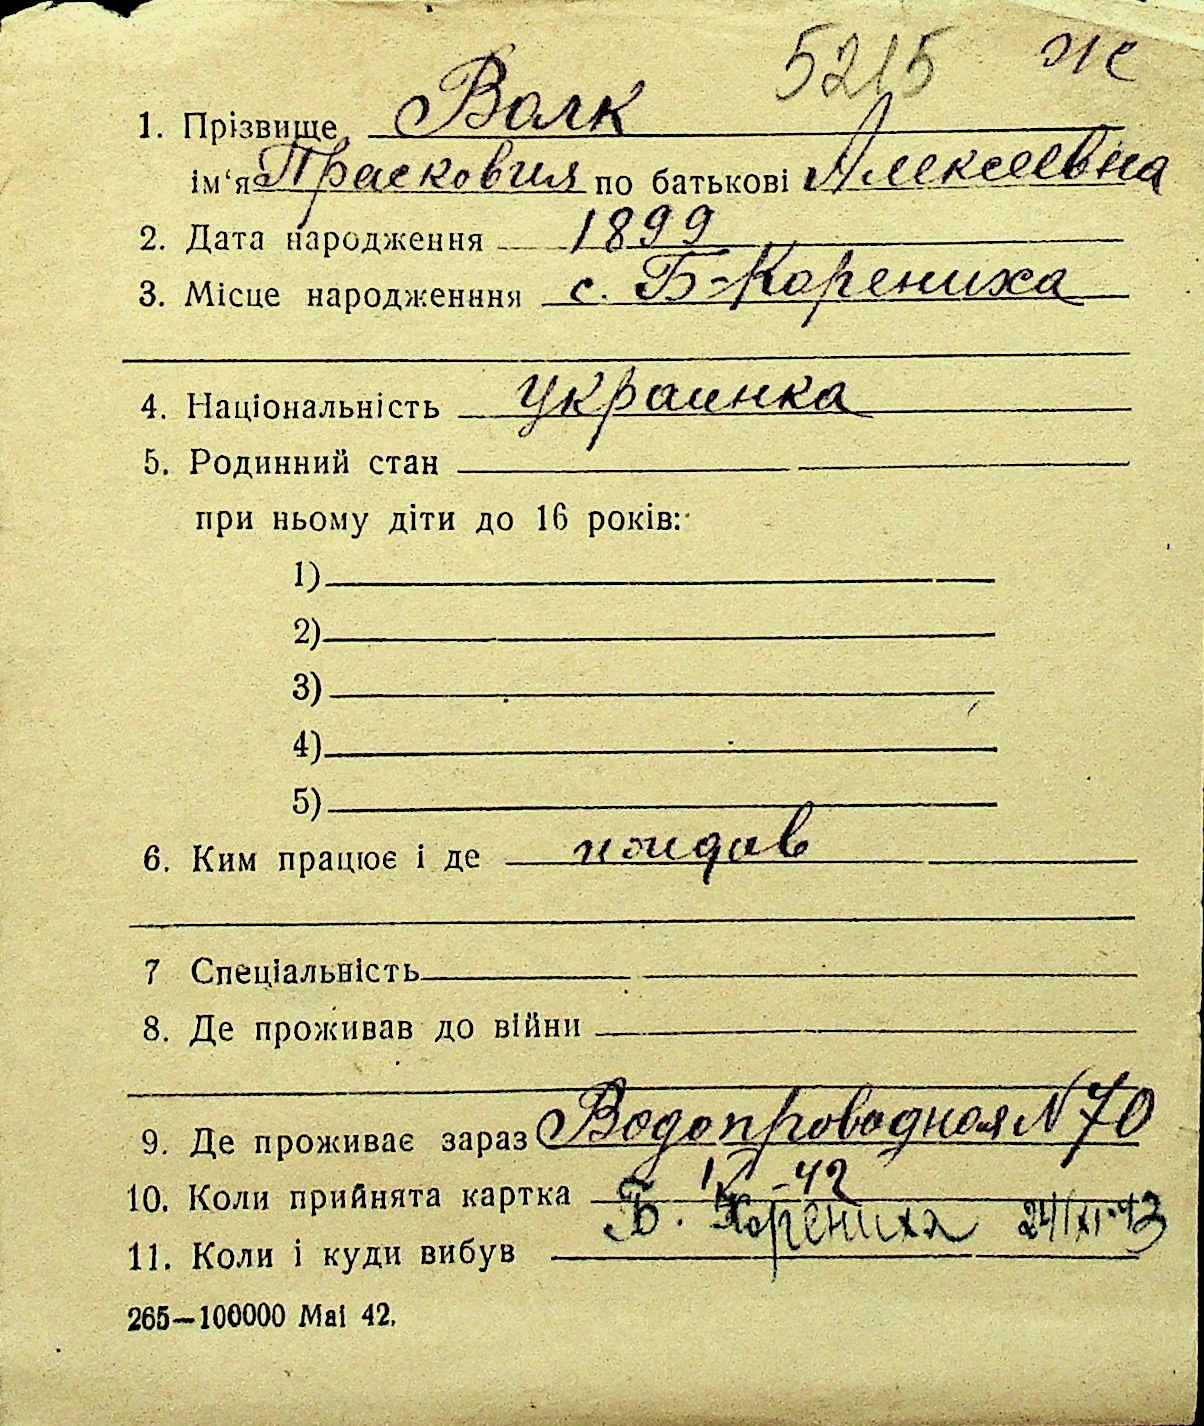 5215 Ж
1. Прізвище Волк
ім‘я Прасковия по батькові Алексеевна
2. Дата народження 1899
3. Місце народженння с. Б-Корениха
4. Національність украинка
5. Родинний стан
при ньому діти до 16 років:
1)
2)
3)
4)
5)
6. Ким працює і де иждив
7 Спеціальність
8. Де проживав до війни
9. Де проживає зараз Водопроводная N 70
10. Коли прийнята картка -42
11. Коли і куди вибув Б. Корениха 24/XI-43
265—100000 Mai 42.